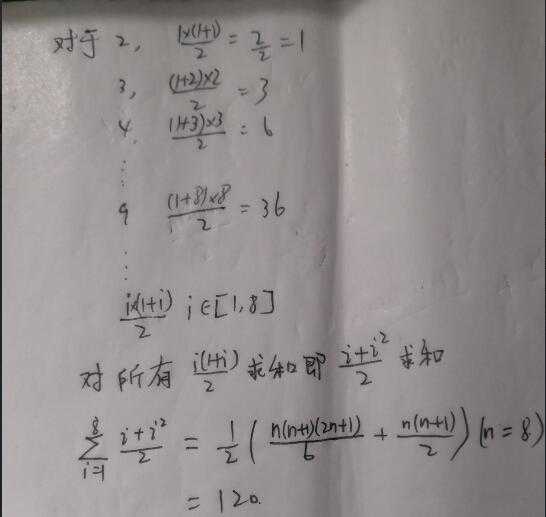 对于 2, 1×(1+1)/2 = 2/2 = 1
3, (1+2)×2/2 = 3
4, (1+3)×3/2 = 6
⋮
9 (1+8)×8/2 = 36
⋮
i×(1+i)/2 i∈[1,8]
对所有 i(1+i)/2 求和即 i+i²/2 求和
∑_{i=1}^{8} i+i²/2 = 1/2 ( n(n+1)(2n+1)/6 + n(n+1)/2 ) (n=8)
= 120.